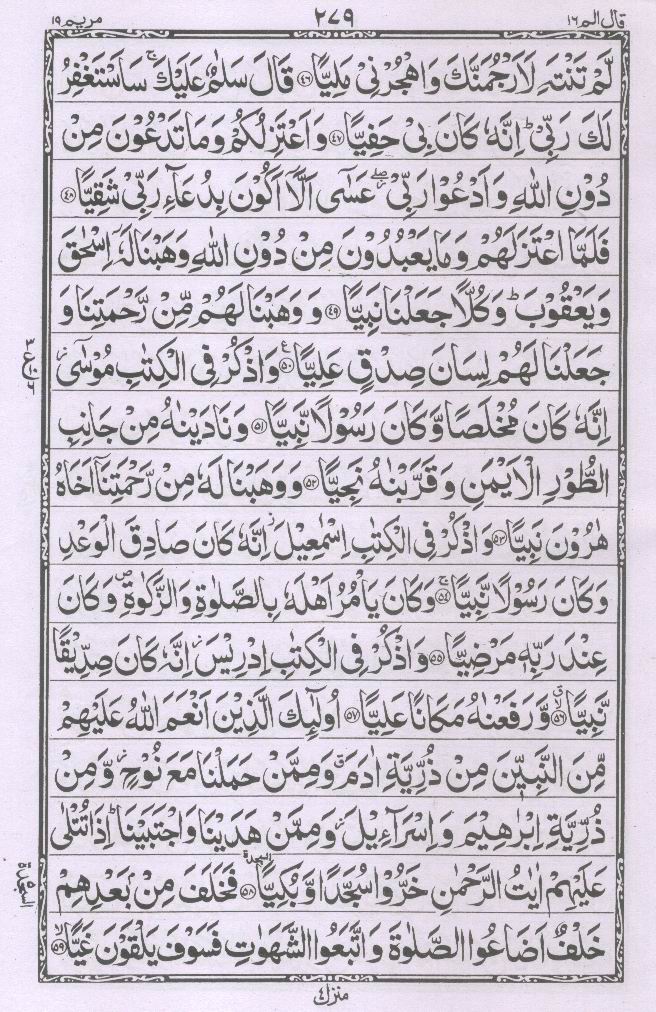 قال الم ١٦
٢٧٩
مريم ١٩
لَّمْ تَنْتَهِ لَاَرْجُمَنَّكَ وَاهْجُرْنِیْ مَلِيًّا ﴿٤٦﴾ قَالَ سَلٰمٌ عَلَيْكَ ۚ سَاَسْتَغْفِرُ
لَكَ رَبِّیْ ؕ اِنَّهٗ كَانَ بِیْ حَفِيًّا ﴿٤٧﴾ وَاَعْتَزِلُكُمْ وَمَا تَدْعُوْنَ مِنْ
دُوْنِ اللّٰهِ وَاَدْعُوْا رَبِّیْ ۖ عَسٰۤی اَلَّاۤ اَكُوْنَ بِدُعَآءِ رَبِّیْ شَقِيًّا ﴿٤٨﴾
فَلَمَّا اعْتَزَلَهُمْ وَمَا يَعْبُدُوْنَ مِنْ دُوْنِ اللّٰهِ وَهَبْنَا لَهٗۤ اِسْحٰقَ
وَيَعْقُوْبَ ؕ وَكُلًّا جَعَلْنَا نَبِيًّا ﴿٤٩﴾ وَوَهَبْنَا لَهُمْ مِّنْ رَّحْمَتِنَا وَ
جَعَلْنَا لَهُمْ لِسَانَ صِدْقٍ عَلِيًّا ﴿٥٠﴾ ع وَاذْكُرْ فِی الْكِتٰبِ مُوْسٰۤی ز
اِنَّهٗ كَانَ مُخْلَصًا وَّكَانَ رَسُوْلًا نَّبِيًّا ﴿٥١﴾ وَنَادَيْنٰهُ مِنْ جَانِبِ
الطُّوْرِ الْاَيْمَنِ وَقَرَّبْنٰهُ نَجِيًّا ﴿٥٢﴾ وَوَهَبْنَا لَهٗ مِنْ رَّحْمَتِنَاۤ اَخَاهُ
هٰرُوْنَ نَبِيًّا ﴿٥٣﴾ وَاذْكُرْ فِی الْكِتٰبِ اِسْمٰعِيْلَ ز اِنَّهٗ كَانَ صَادِقَ الْوَعْدِ
وَكَانَ رَسُوْلًا نَّبِيًّا ﴿٥٤﴾ ۚ وَكَانَ يَاْمُرُ اَهْلَهٗ بِالصَّلٰوةِ وَالزَّكٰوةِ ص وَكَانَ
عِنْدَ رَبِّهٖ مَرْضِيًّا ﴿٥٥﴾ وَاذْكُرْ فِی الْكِتٰبِ اِدْرِيْسَ ز اِنَّهٗ كَانَ صِدِّيْقًا
نَّبِيًّا ﴿٥٦﴾ وَّرَفَعْنٰهُ مَكَانًا عَلِيًّا ﴿٥٧﴾ اُولٰٓئِكَ الَّذِيْنَ اَنْعَمَ اللّٰهُ عَلَيْهِمْ
مِّنَ النَّبِيّٖنَ مِنْ ذُرِّيَّةِ اٰدَمَ ق وَمِمَّنْ حَمَلْنَا مَعَ نُوْحٍ ز وَّمِنْ
ذُرِّيَّةِ اِبْرٰهِيْمَ وَاِسْرَآءِيْلَ ز وَمِمَّنْ هَدَيْنَا وَاجْتَبَيْنَا ؕ اِذَا تُتْلٰی
عَلَيْهِمْ اٰيٰتُ الرَّحْمٰنِ خَرُّوْا سُجَّدًا وَّبُكِيًّا ﴿٥٨﴾ السجدة فَخَلَفَ مِنْۢ بَعْدِهِمْ
خَلْفٌ اَضَاعُوا الصَّلٰوةَ وَاتَّبَعُوا الشَّهَوٰتِ فَسَوْفَ يَلْقَوْنَ غَيًّا ﴿٥٩﴾ لا
السجدة ٥
منزل ٤